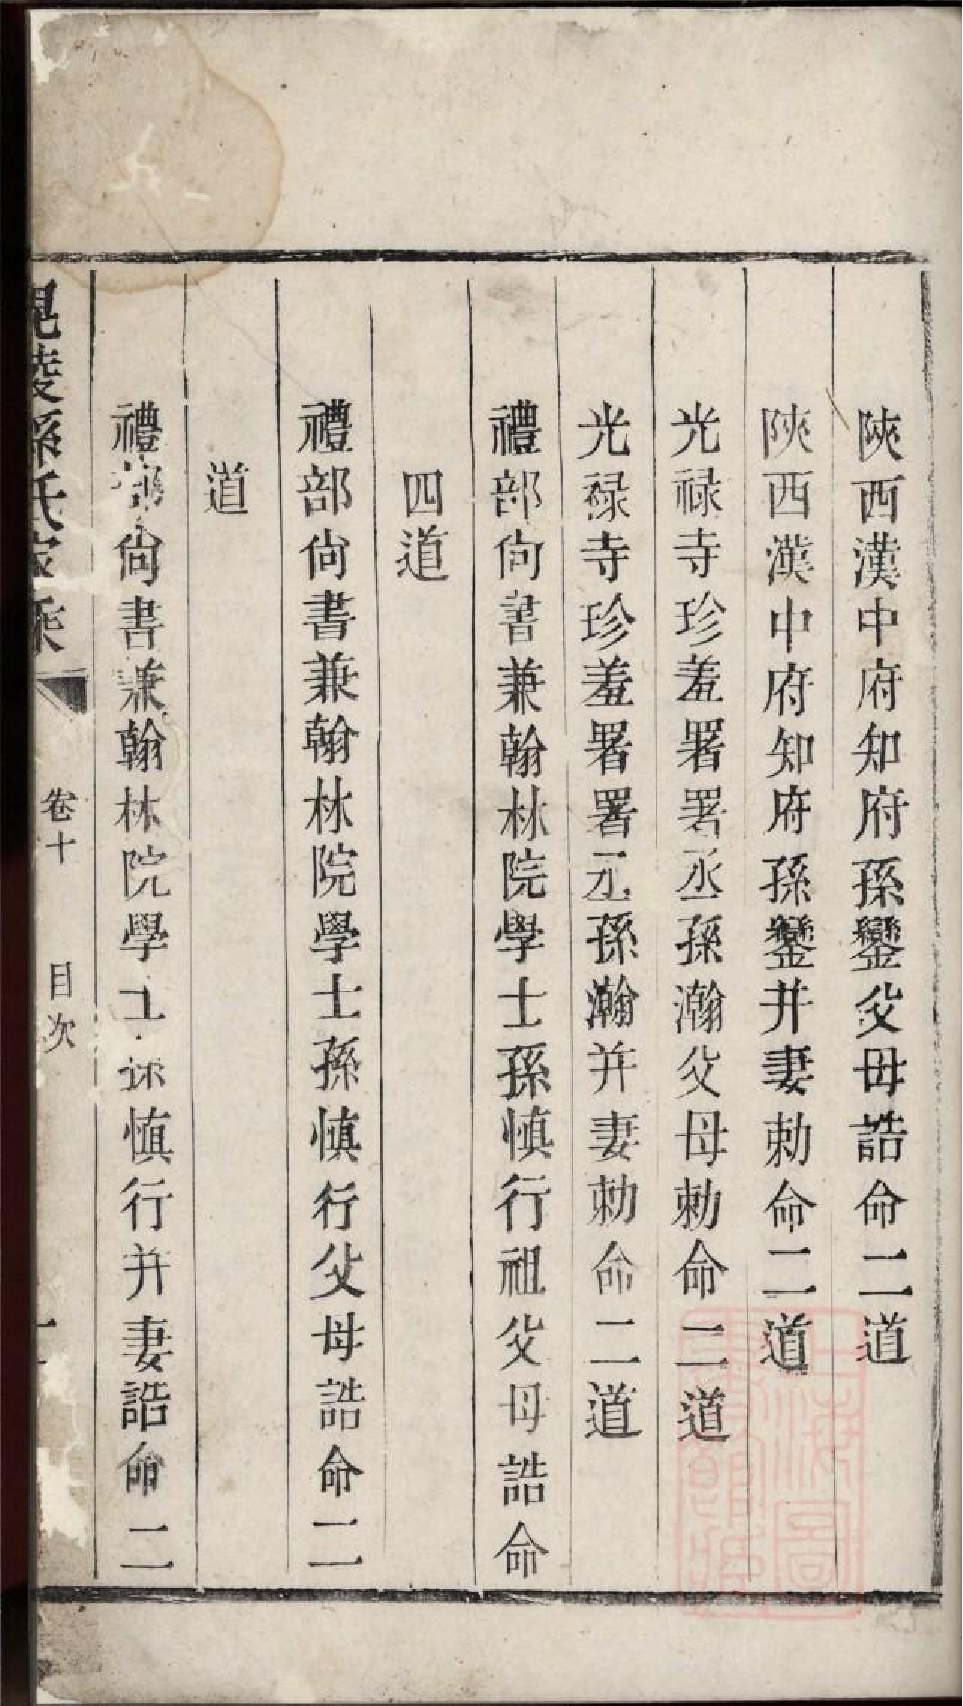 陝西漢中府知府孫鑾父母誥命二道
陝西漢中府知府孫鑾并妻勅命二道
光祿寺珍羞署署丞孫瀚父母勅命二道
光祿寺珍羞署署丞孫瀚并妻勅命二道
禮部尙書兼翰林院學士孫慎行祖父母誥命
四道
禮部尙書兼翰林院學士孫慎行父母誥命二
道
禮部尙書兼翰林院學士孫慎行并妻誥命二
毘陵孫氏家乘 卷十 目次
上海圖書館藏